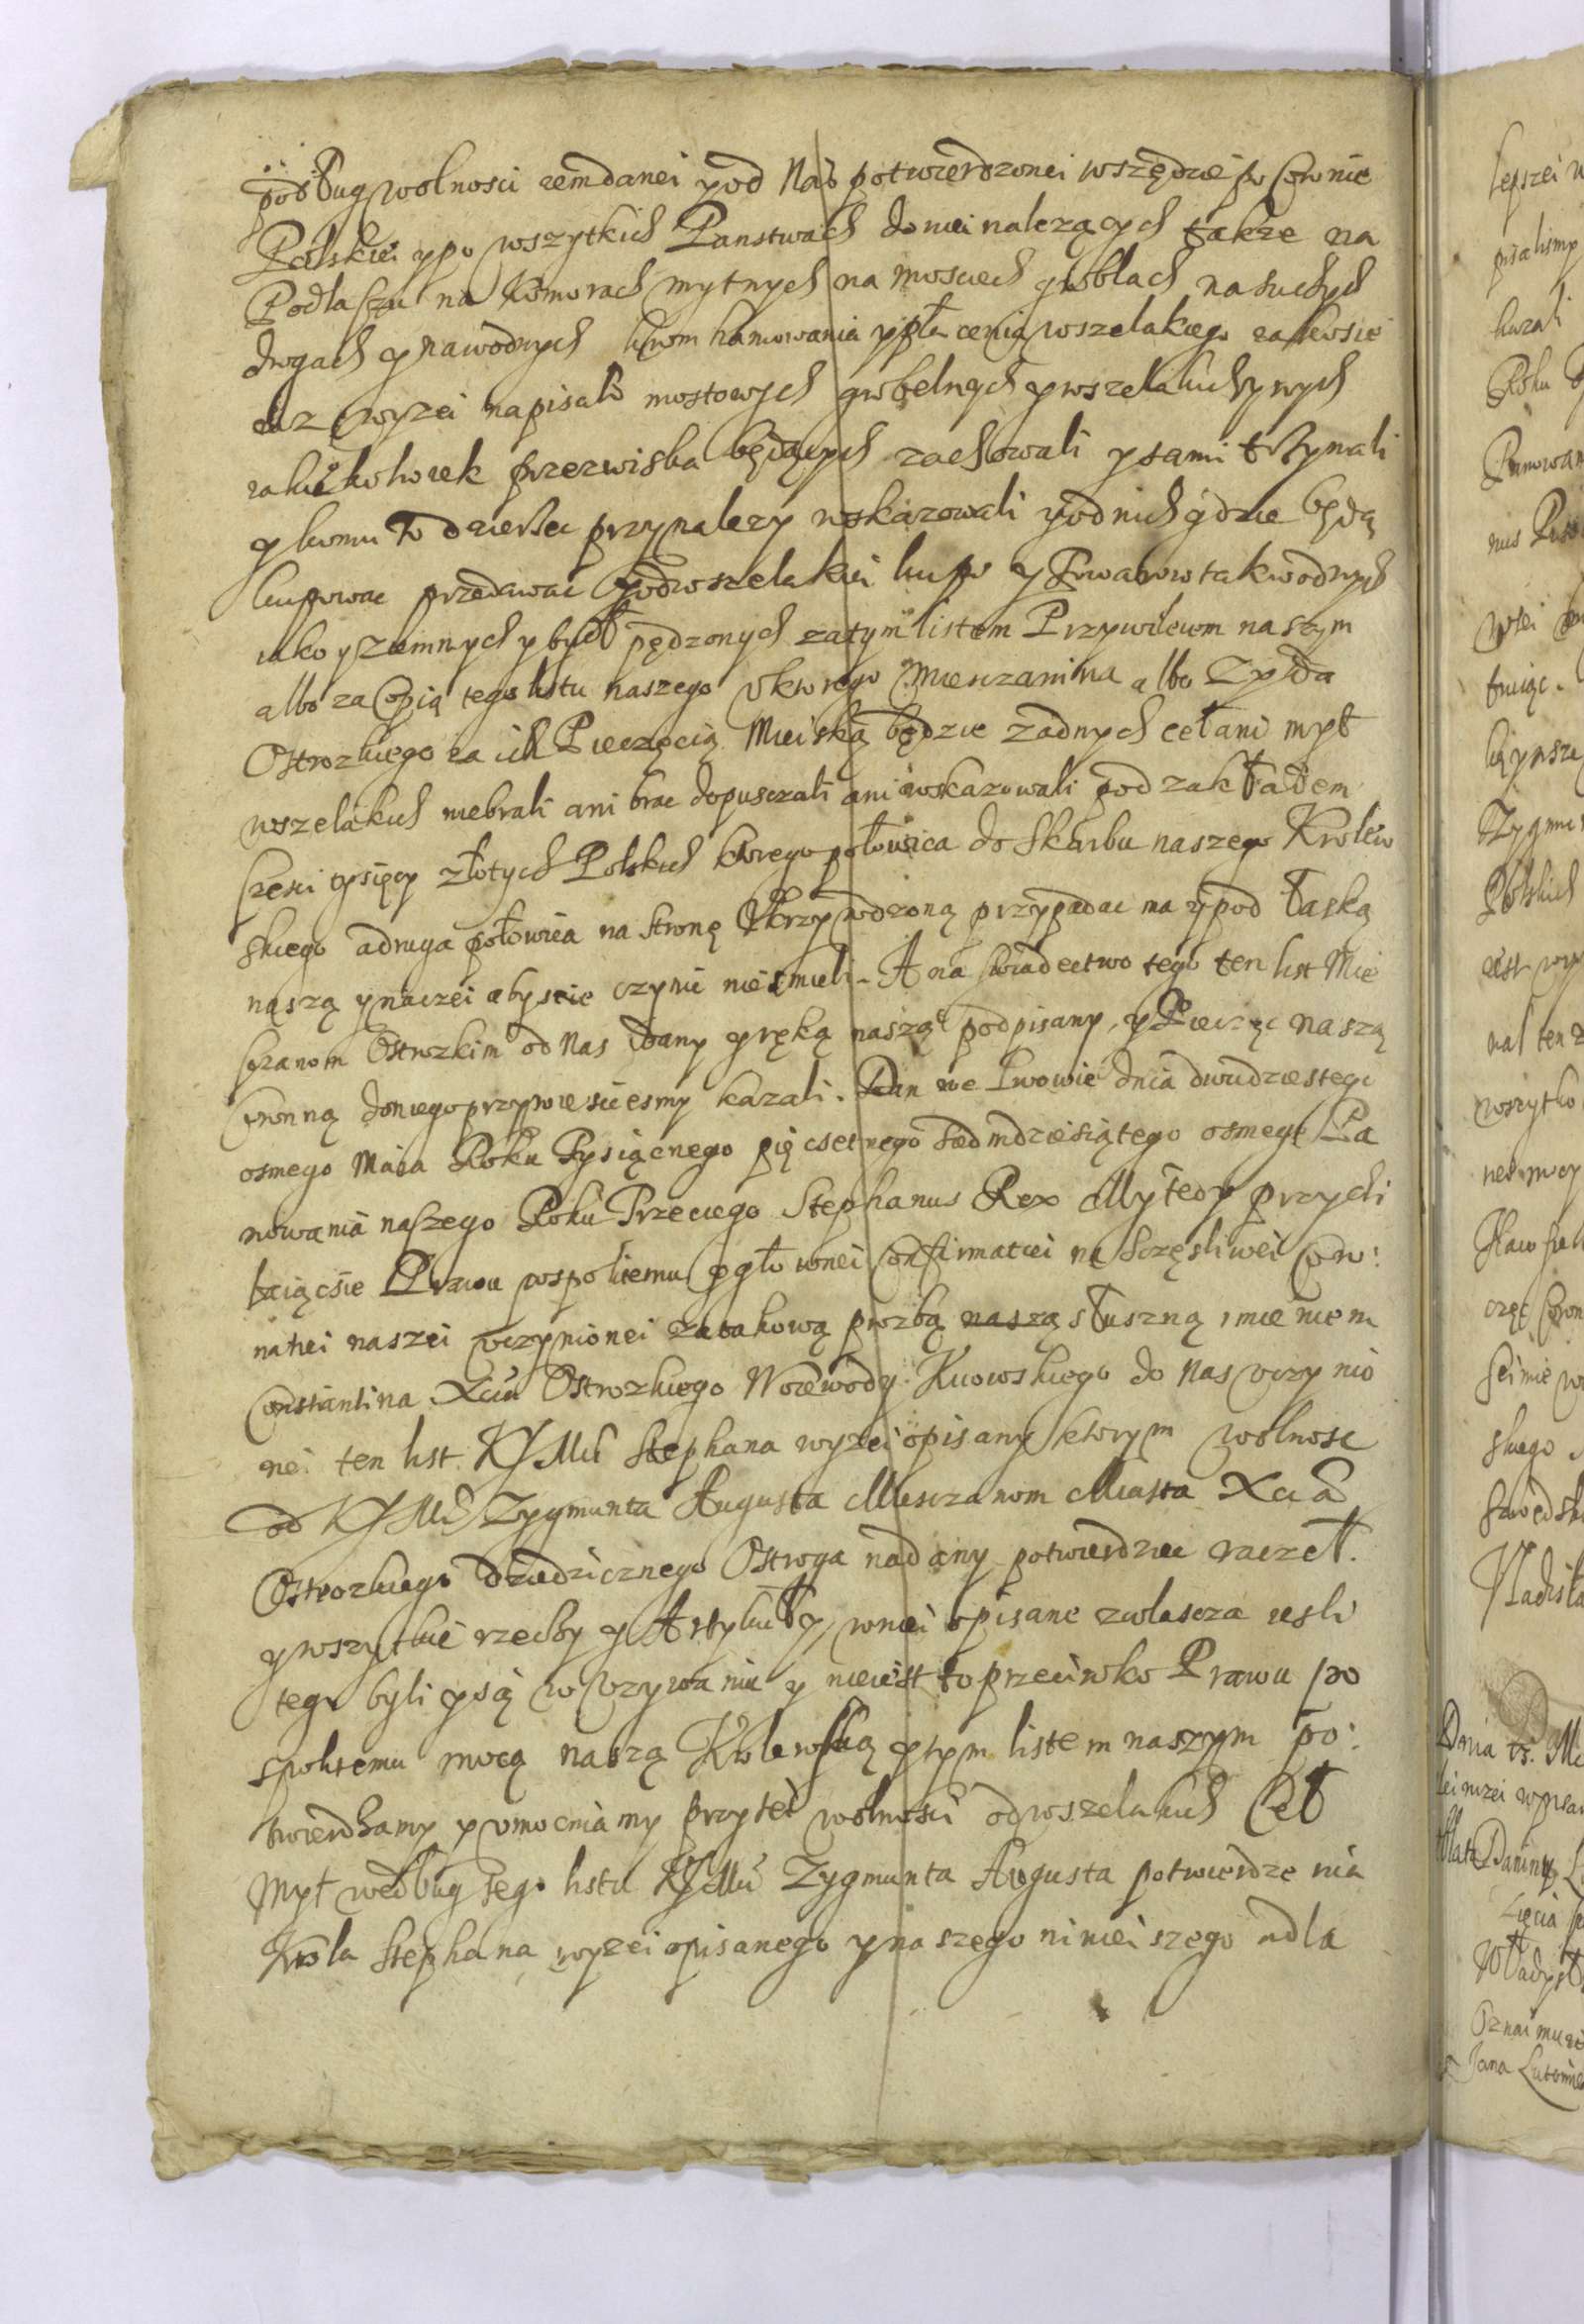 podług wolnosci iem danei y od Nas potwierdzonei wszędzie w Coronie
Polskiei y po wszytkich Panstwach do niei nalezących takze na
Podlaszu na Komorach mytnych na mosciech groblach na suchych
drogach y na wodnych krom hamowania y płacenia wszelakiego iakosie
iuz wyzei napisało mostowych grobelnych y wszelakich ynych
iakiezkolwiek przezwiska będących zachowali y sami trzymali
y komu to dzierzec przynalezy wskazowali y od nich gdzie będą
kupowac przedawac y od wszelakiei kupi y Towarow tak wodnych
iako y ziemnych y bydł pędzonych za tym listem Przywileiom naszym
albo za Copią tego listu naszego v ktorego Miesczanina albo Zyda
Ostrozkiego za ich Pieczęcią Mieiską będzie zadnych ceł ani myt
wszelakich niebrali ani brac dopusczali ani wskazowali pod zakładem
szesci tysięcy złotych Polskich ktorego połowica do Skarbu naszego Krolew
skiego a druga połowica na stronę Vkrzywdzoną przypadac ma y pod łaską
naszą ynaczei abyscie czynic niesmieli - A na swiadectwo tego ten list Mie
sczanom Ostrozkim od Nas dany y ręką naszą podpisany, y Pieczęc naszą
Coronną do niego przywiesicesmy kazali. Dan we Lwowie dnia dwudziestego
osmego Maia Roku Tysiącnego pięcsetnego siedmdziesiątego osmego Pa
nowania naszego Roku Trzeciego Stephanus Rex My tedy przychi
laiącsie Prawu pospolitemu y głownei Confirmatiei na Sczęsliwei Coro:
natiei naszei vczynionei za takową prozbą naszą słuszną imieniem
Constantina Xcia Ostrozkiego Woiewody Kiiowskiego do Nas vczynio
nei ten list KJMci Stephana wyzei opisany ktorym wolnosc
od KJMci Zygmunta Augusta Miesczanom Miasta Xcia
Ostrozkiego dziedzicznego Ostroga nadany potwierdzic raczeł.
y wszytkie rzeczy y Artykuły w niei opisane zwlascza iesli
tego byli y są w vzywaniu y nieiest to przeciwko Prawu po
spolitemu mocą naszą Krolewską y tym listem naszym po:
twierdzamy y vmocniamy przy tei wolnosci od wszelakich Ceł
Myt według tego listu KJMci Zygmunta Augusta potwierdzenia
Krola Stephana wyzei opisanego y naszego ninieiszego a dla